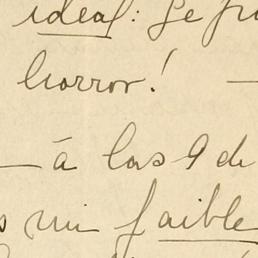 ideal: Je fu
horror! —
— á las 9 de
s mi faible